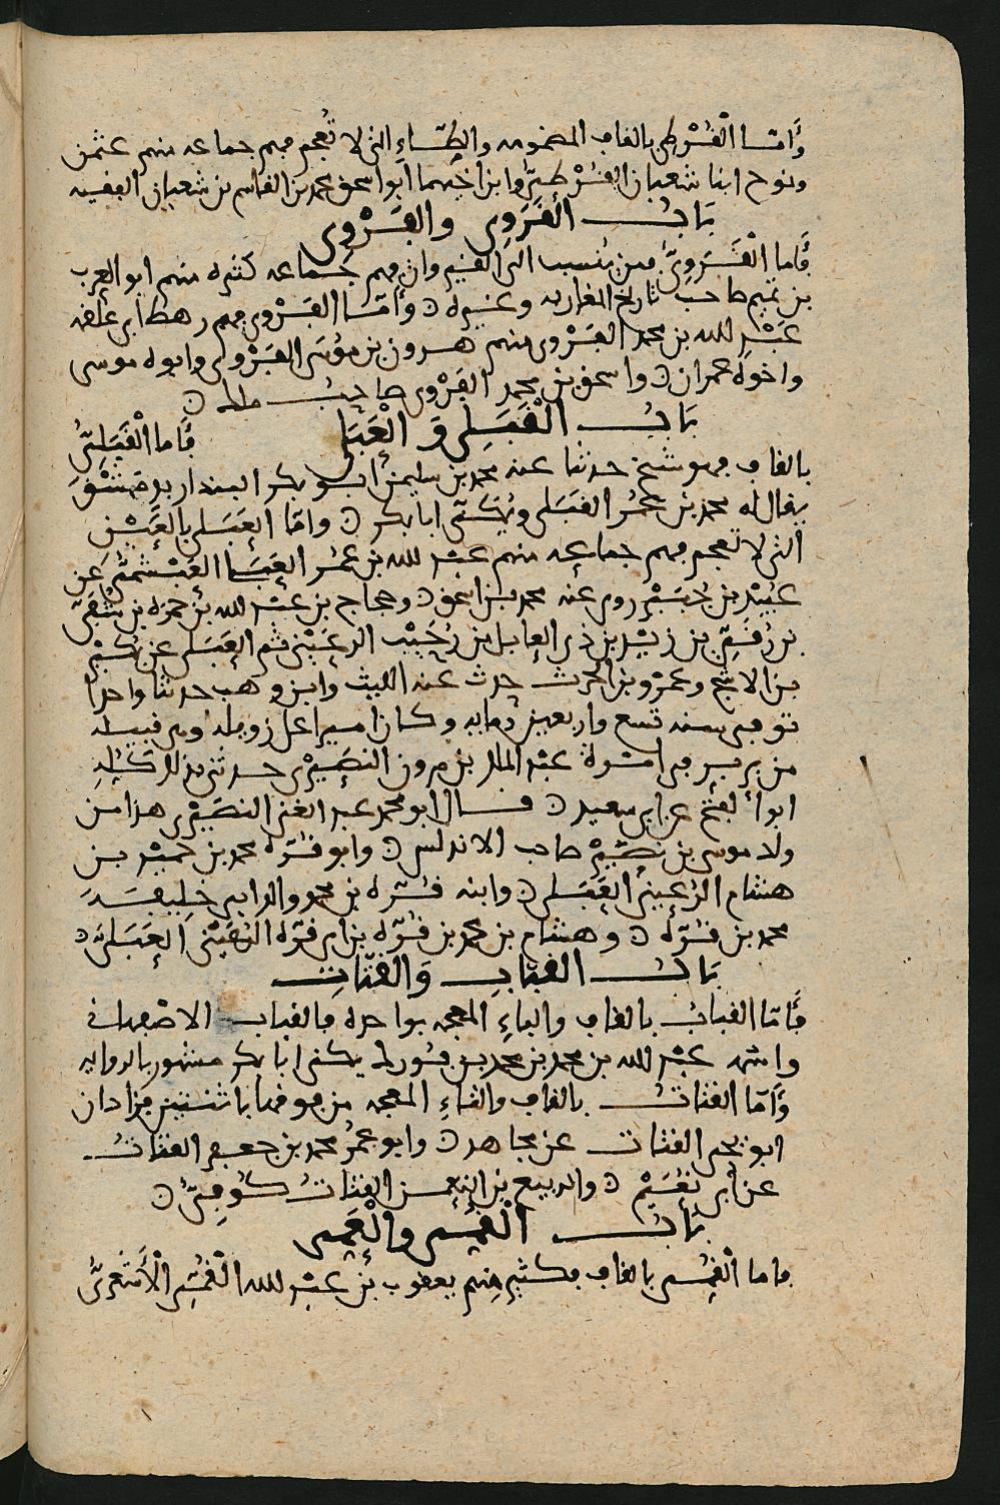 وَأمّا الْقُرْطِي بالقاف المضمومه والطَّاءِ التى لا تُعجم فهم جماعه منهم عثمن
ونوح ابنا شعبان القُرْطِيّ وابن اخيهما ابو اسحق محمد بن القاسم بن شعبان الفقيه
بَابُ القَرَوِى والفَرْوِى
فأما الْقَرَوِىُّ فمن يُنسب الى القيروان فهم جماعه كثيره منهم ابو العرب
بن تميم صاحب تاريخ المغاربه وغيره وَأمّا الفَرْوى فهم رهط ابى علقمه
عَبْد الله بن محمد الفَرْوى منهم هرون بن مُوسَى الفَرْوى وابوه موسى
واخوه عمران واسحق بن محمد الفَرْوى صاحبُ ملك
بَابُ الْقَبَلِى وَ الْعَبَلى فَأما الْقَبَلِىُّ
بالقاف فهو شيخ حدثنا عنه محمد بن سليمن ابو بكر البندار بدمشق
يقال له محمد بن عُمَر القَبَلى ويُكَنَّى ابا بكر وامّا العَبَلى بالعَيْن
التى لا تعجم فهم جماعه منهم عبد الله بن عُمَر العَبَلى العَبْشَمىُّ عَن
عُبَيْد بن حُنَيْن روى عنه محمد بن اسحق وحجاج بن عَبْد الله بن حمزه بن شُفَىّ
بن رُقَىّ بن زيْد بن ذى العابل بن رُحَيْب الرعَيْنى ثم العَبَلى عن بُكَيْر
بن الاشج وعَمْرو بن الحرث حدث عنه الليث وابن وهب حديثا واحدا
توفى سنه تسع واربعين ومايه وكان اميرا على زويله وهى قبيله
من بربر فى امْرة عبْد الملك بن مرون النصَيْرى حدثنى بذلك كُلِّه
ابو الفتح عن ابى سعيد قال ابو محمد عبد الغنى النصَيْرى هذا من
ولد موسى بن نُصَيْر صاحب الاندلس وابو قُرّه محمد بن حميْد بن
هشام الرُعَينىُ العَبَلى وابنه قُرّه بن محمد والد ابى خليفه
محمد بن قُرّه وهشام بن محمد بن قُرّه بن ابى قرّه الرُعَيْنى العَبَلىُّ
بَابُ القبّابِ وَالقتّاتِ
فأمّا القبابُ بالقاف والباءِ المعجمه بواحده فالقباب الاصْبهانى
واسْمه عبْد الله بن محمد بن محمد بن فُورك يكنى ابا بكر مشهور بالروايه
وَأمّا القتاتُ بالقاف والتاءِ المعجمه من فوقها باثنتين فزاذان
ابو يحيى القتات عن مجاهد وابو عُمَر محمد بن جعفر القتاتُ
عن ابى نُعَيْم والربيع بن النعمن القتاتُ كُوفِىّ
بَابُ الْقُمِّى والْعَمِّى
فاما الْقُمِّى بالقاف فكثير منهم يعقوب بن عبْد الله الْقُمِّى الْأَشْعَرِىُّ